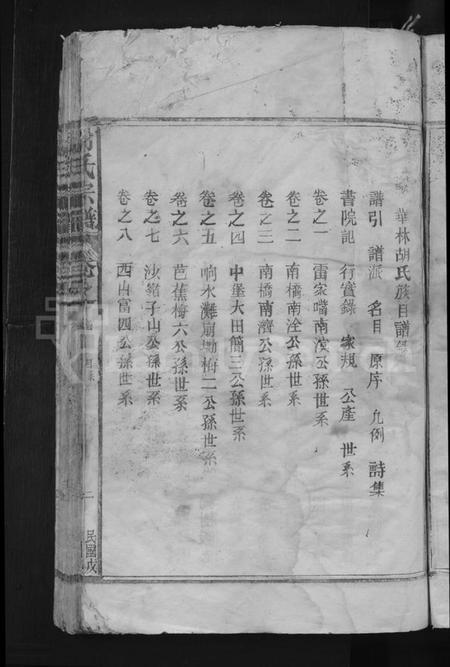 華林胡氏族目譜
譜引 譜派 名目 原序 凡例 詩集
書院記 行實錄 家規 公產 世系
卷之一 雷家嘴南凌公孫世系
卷之二 南橋南淦公孫世系
卷之三 南橋南濟公孫世系
卷之四 中堡大田簡三公孫世系
卷之五 响水灘廟坳梅二公孫世系
卷之六 芭蕉梅六公孫世系
卷之七 沙嶺子山公孫世系
卷之八 西山富四公孫世系
氏宗譜 卷
二
民國戊